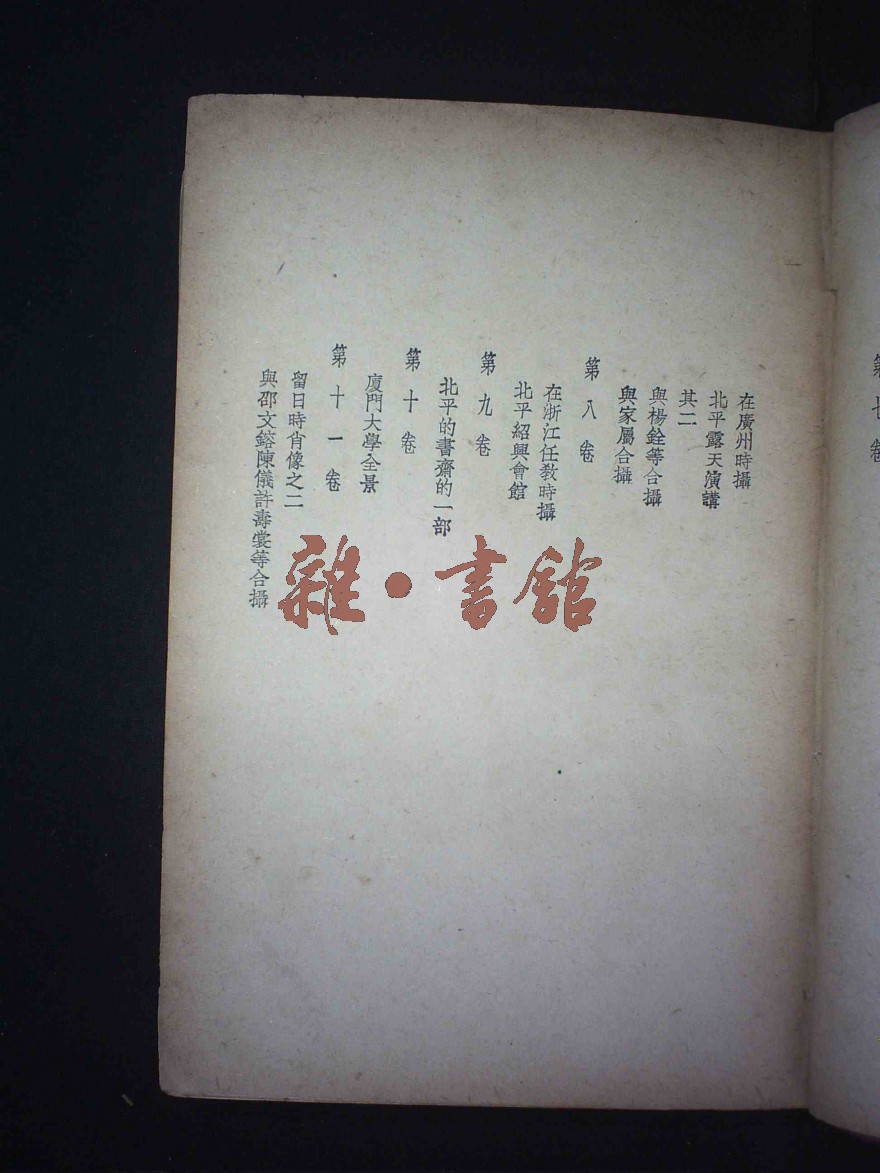 第七卷
在廣州時攝
北平露天演講
其二
與楊銓等合攝
與家屬合攝
第八卷
在浙江任教時攝
北平紹興會館
第九卷
北平的書齋的一部
第十卷
廈門大學全景
第十一卷
留日時肖像之二
與邵文鎔陳儀許壽裳等合攝
雜·書館